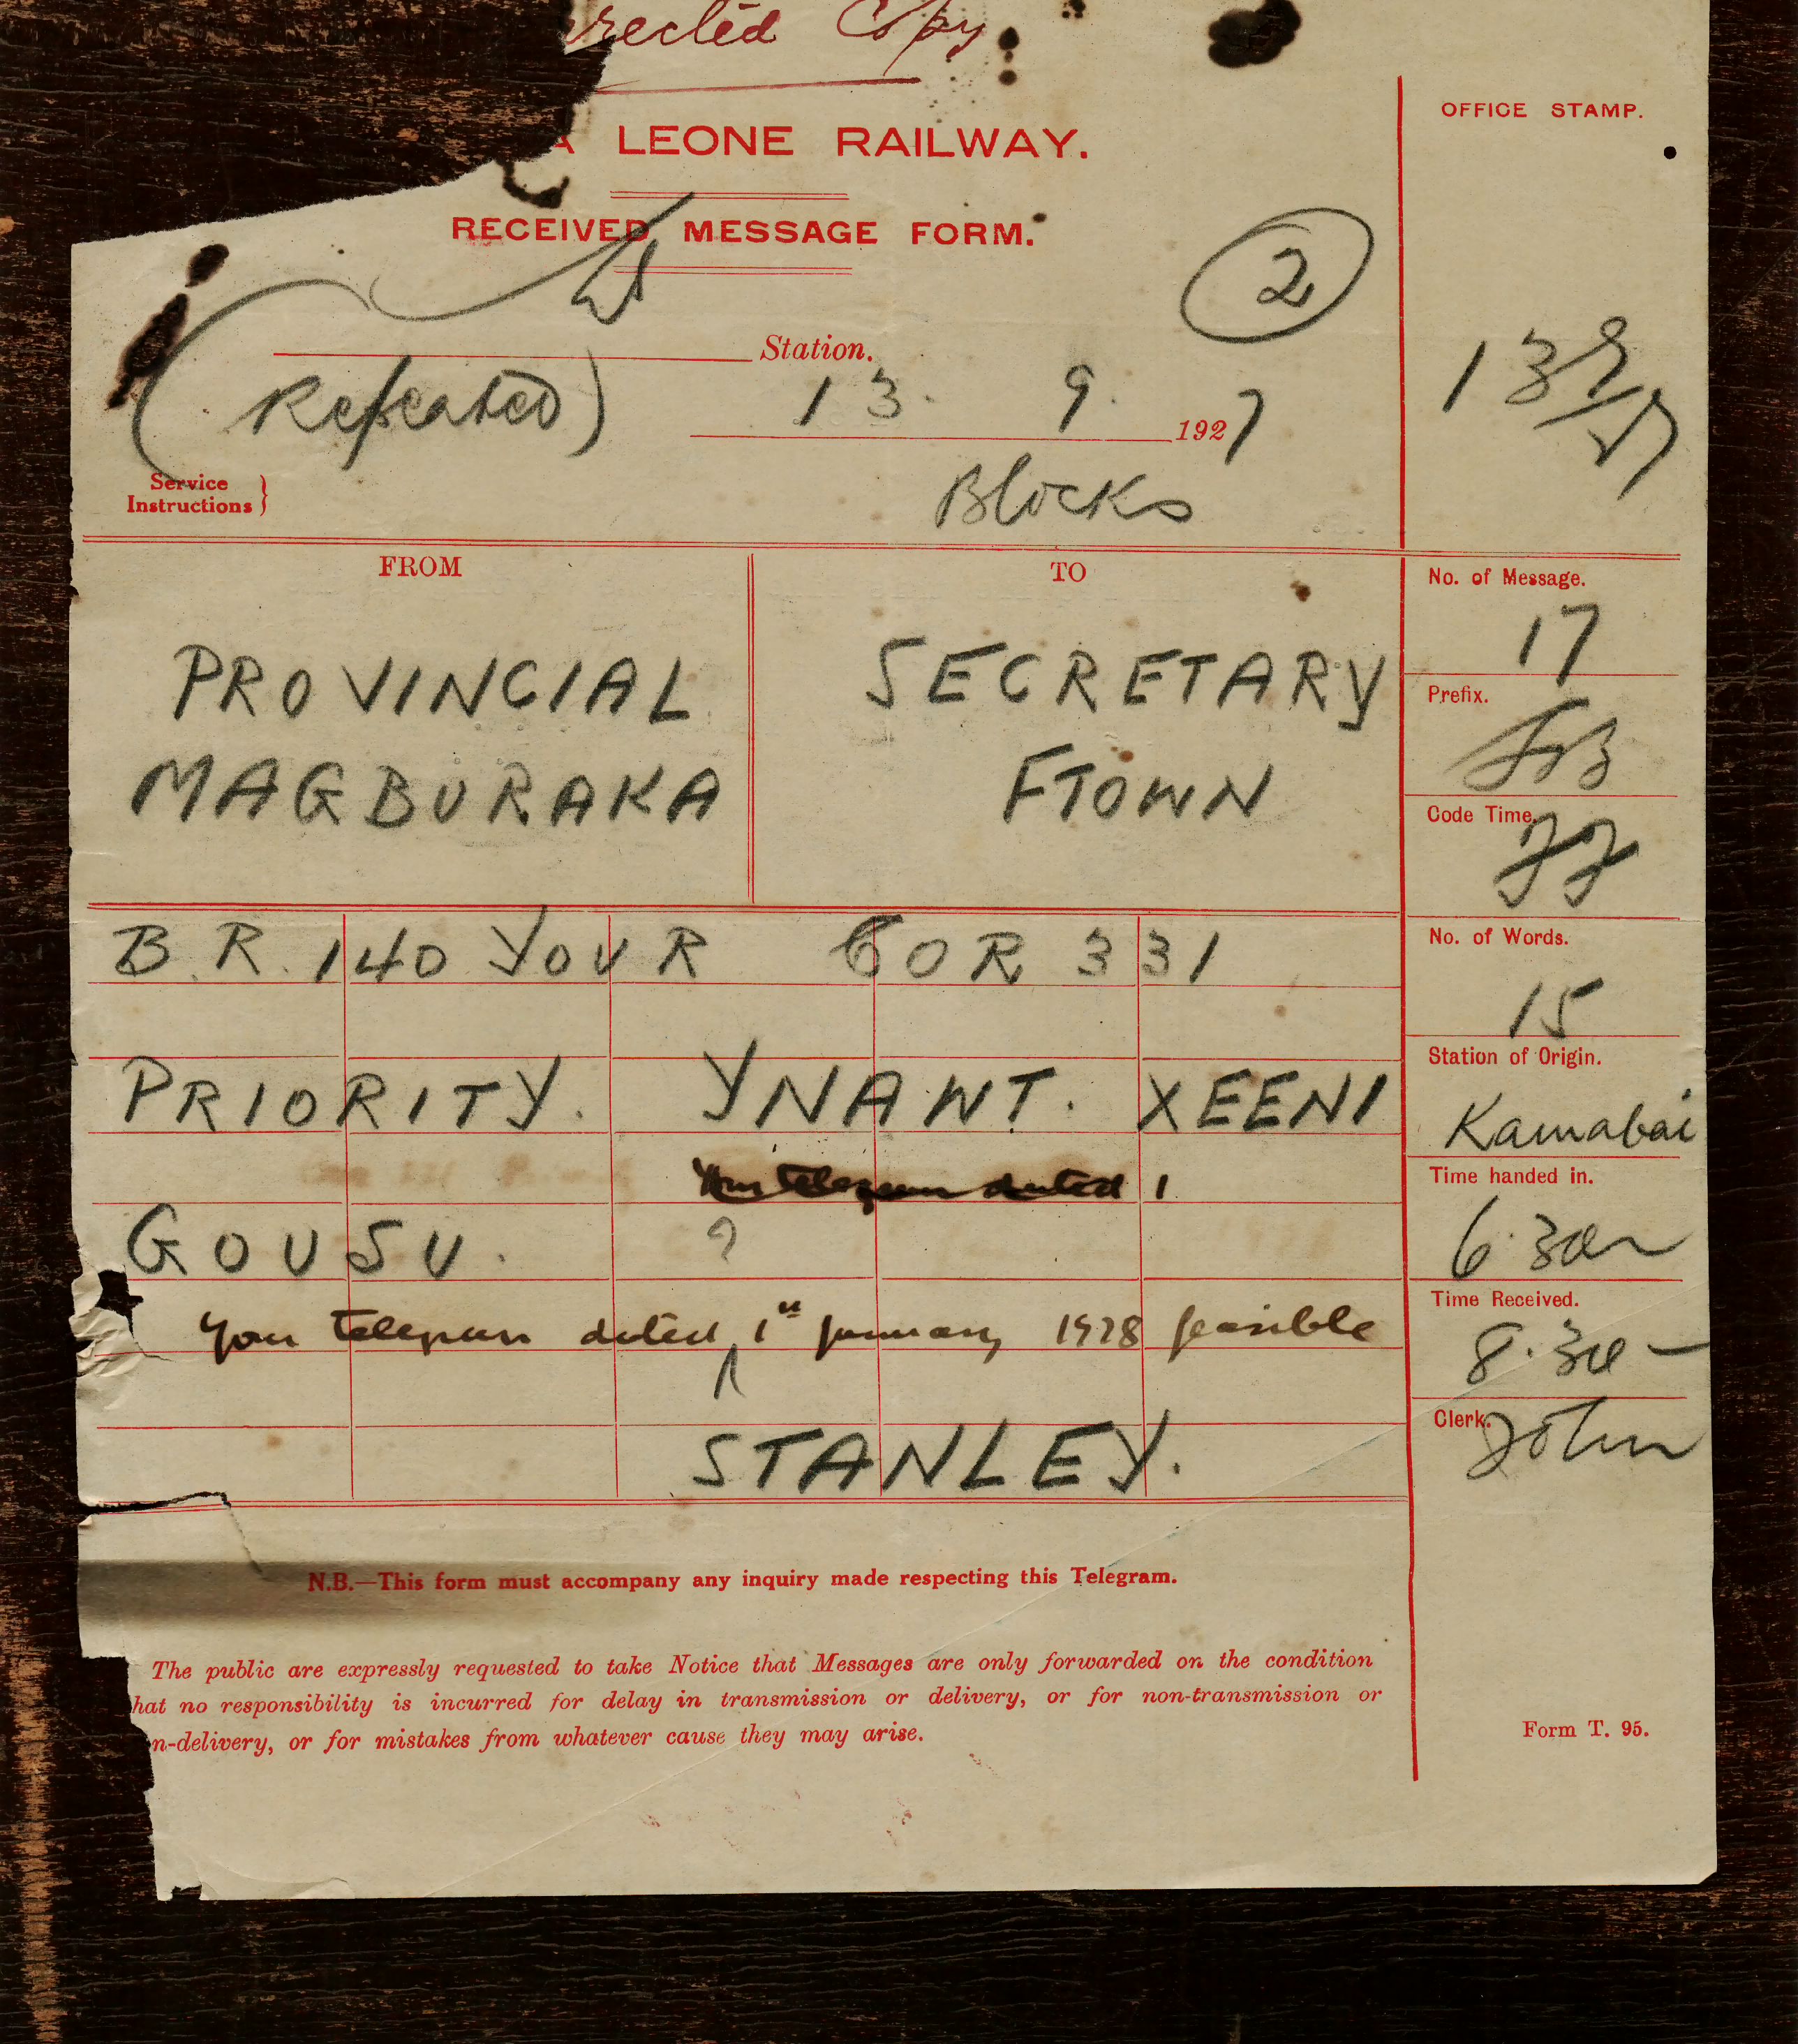 rrected Copy
A LEONE RAILWAY.
OFFICE STAMP.
RECEIVED MESSAGE FORM.
2
Station.
(Repeated)
13. 9. 1927
13 9/27
Service
Instructions }
Blocks
FROM
TO
No. of Message.
17
PROVINCIAL
SECRETARY
Prefix.
MAGBURAKA
FTOWN
Code Time.
B.R. 140 YOUR COR 331
No. of Words.
15
Station of Origin.
PRIORITY. YNAWT. XEENI
Kamabai
Your telegram dated 1
Time handed in.
GOUSU. ?
6.30
Time Received.
Your telegram dated 1st January 1928 feasible
8.30
Clerk.
John
STANLEY.
N.B.—This form must accompany any inquiry made respecting this Telegram.
The public are expressly requested to take Notice that Messages are only forwarded on the condition
hat no responsibility is incurred for delay in transmission or delivery, or for non-transmission or
n-delivery, or for mistakes from whatever cause they may arise.
Form T. 95.